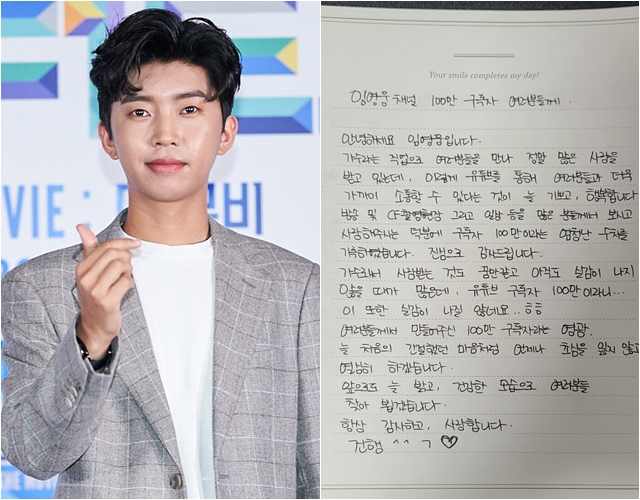 VIE : 미
무비
THE MOVIE
Your smile completes my day!
임영웅 채널 100만 구독자 여러분들께.
안녕하세요 임영웅입니다.
가수라는 직업으로 여러분들을 만나 정말 많은 사랑을
받고 있는데, 이렇게 유튜브를 통해 여러분들과 더욱
가까이 소통할 수 있다는 것이 늘 기쁘고, 행복합니다
방송 및 CF촬영현장 그리고 일상 등을 많은 분들께서 보시고
사랑해주시는 덕분에 구독자 100만이라는 엄청난 수치를
기록하였습니다. 진심으로 감사드립니다.
가수로서 사랑받는 것도 꿈만같고 아직도 실감이 나지
않을 때가 많은데, 유튜브 구독자 100만이라니...
이 또한 실감이 나질 않네요..ㅎㅎ
여러분들께서 만들어주신 100만 구독자라는 영광.
늘 처음의 간절했던 마음처럼 언제나 초심을 잃지 않고
열심히 하겠습니다.
앞으로도 늘 밝고, 건강한 모습으로 여러분들
찾아 뵙겠습니다.
항상 감사하고, 사랑합니다.
건행 ^^ ㄱ ♡